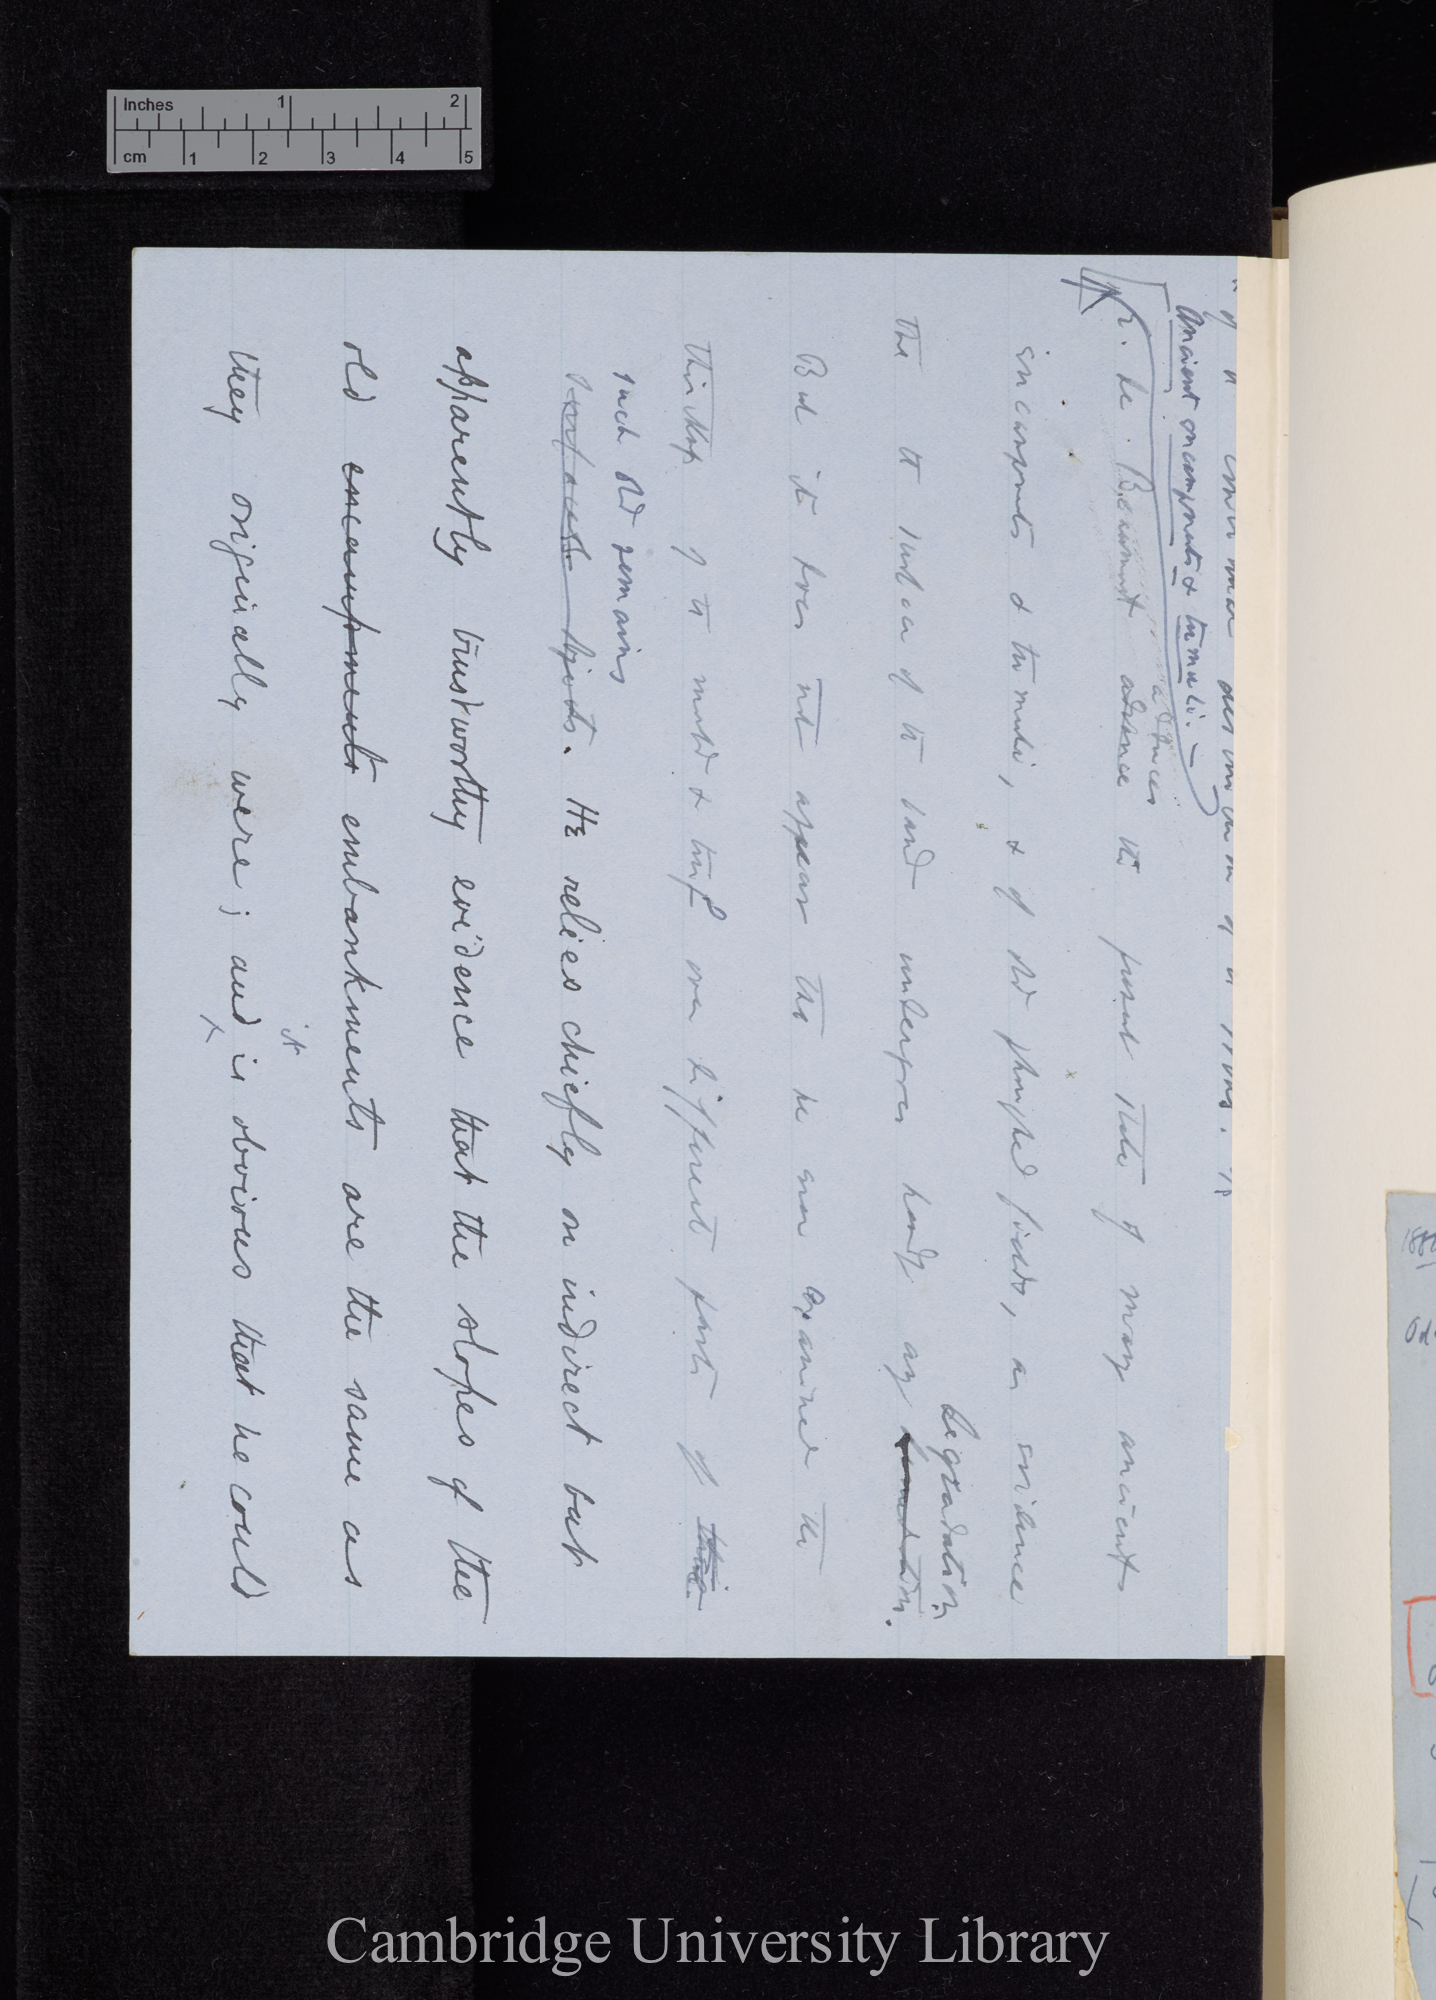 Ancient encampments & tumuli. —
adduces
de Beaumont advance the present state of many ancient
encampments & tumuli, & of old ploughed fields, as evidence
degradation.
the surface of the land undergoes hardly any
But it does not appear that he ever examined the
thickness of the mould & turf over different parts of these.
such old remains
objects. He relies chiefly on indirect but
apparently trustworthy evidence that the slopes of the
old encampments embankments are the same as
it
they originally were; and is obvious that he could
Inches 1 2
cm 1 2 3 4 5
Cambridge University Library